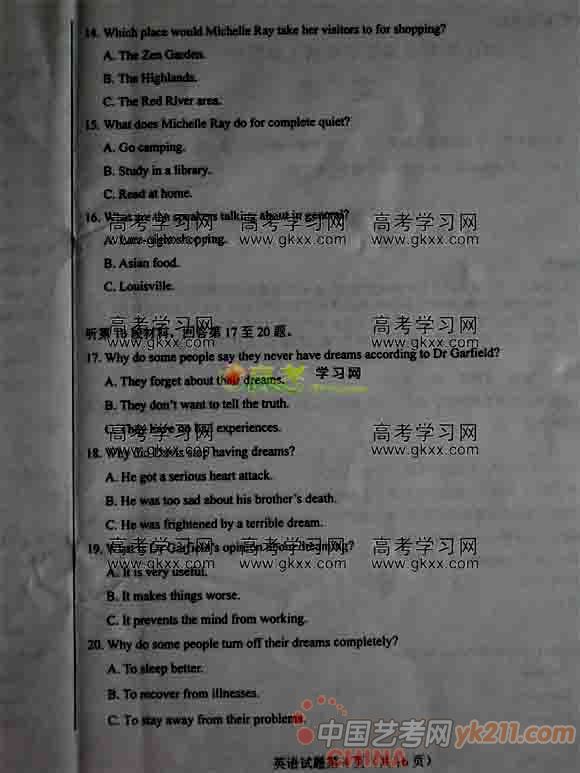 14. Which place would Michelle Ray take her visitors to for shopping?
A. The Zen Garden.
B. The Highlands.
C. The Red River area.
15. What does Michelle Ray do for complete quiet?
A. Go camping.
B. Study in a library.
C. Read at home.
16. What are the speakers talking about in general?
高考学习网 高考学习网
A. Late-night shopping.
www.gkxx.com www.gkxx.com
B. Asian food.
C. Louisville.
高考学习网 高考学习网
听第10段材料，回答第17至20题。
www.gkxx.com www.gkxx.com
17. Why do some people say they never have dreams according to Dr Garfield?
高考学习网
A. They forget about their dreams.
B. They don't want to tell the truth.
C. They have no bad experiences.
高考学习网 高考学习网
18. Why did Davis stop having dreams?
www.gkxx.com www.gkxx.com
A. He got a serious heart attack.
B. He was too sad about his brother's death.
C. He was frightened by a terrible dream.
19. What is Dr Garfield's opinion about dreaming?
高考学习网 高考学习网
www.gkxx.com www.gkxx.com
A. It is very useful.
B. It makes things worse.
C. It prevents the mind from working.
20. Why do some people turn off their dreams completely?
A. To sleep better.
B. To recover from illnesses.
C. To stay away from their problems.
中国艺考网 yk211.com
CHINA
英语试题第4页（共16页）